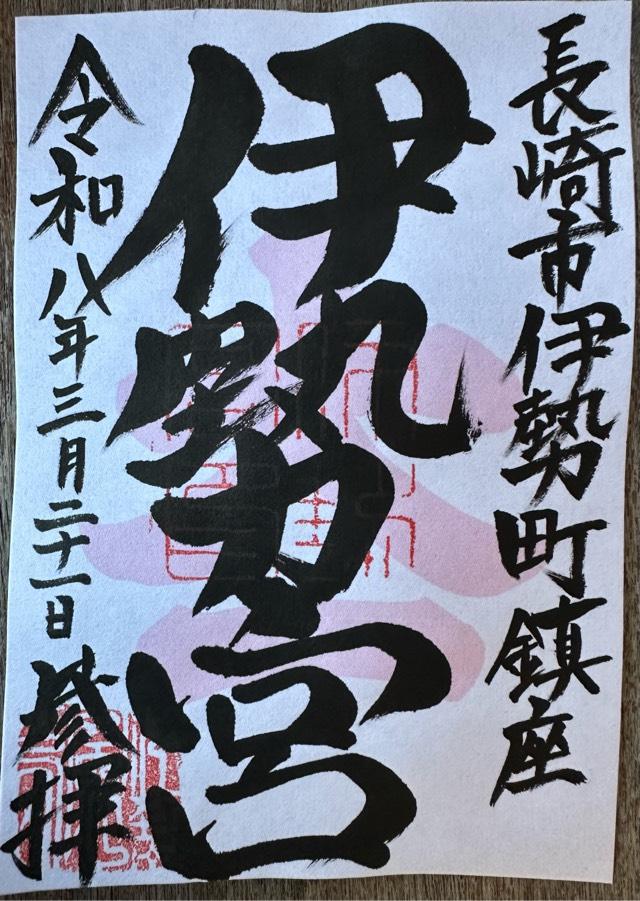 長崎市伊勢町鎮座
伊勢宮
令和八年三月二十一日参拝